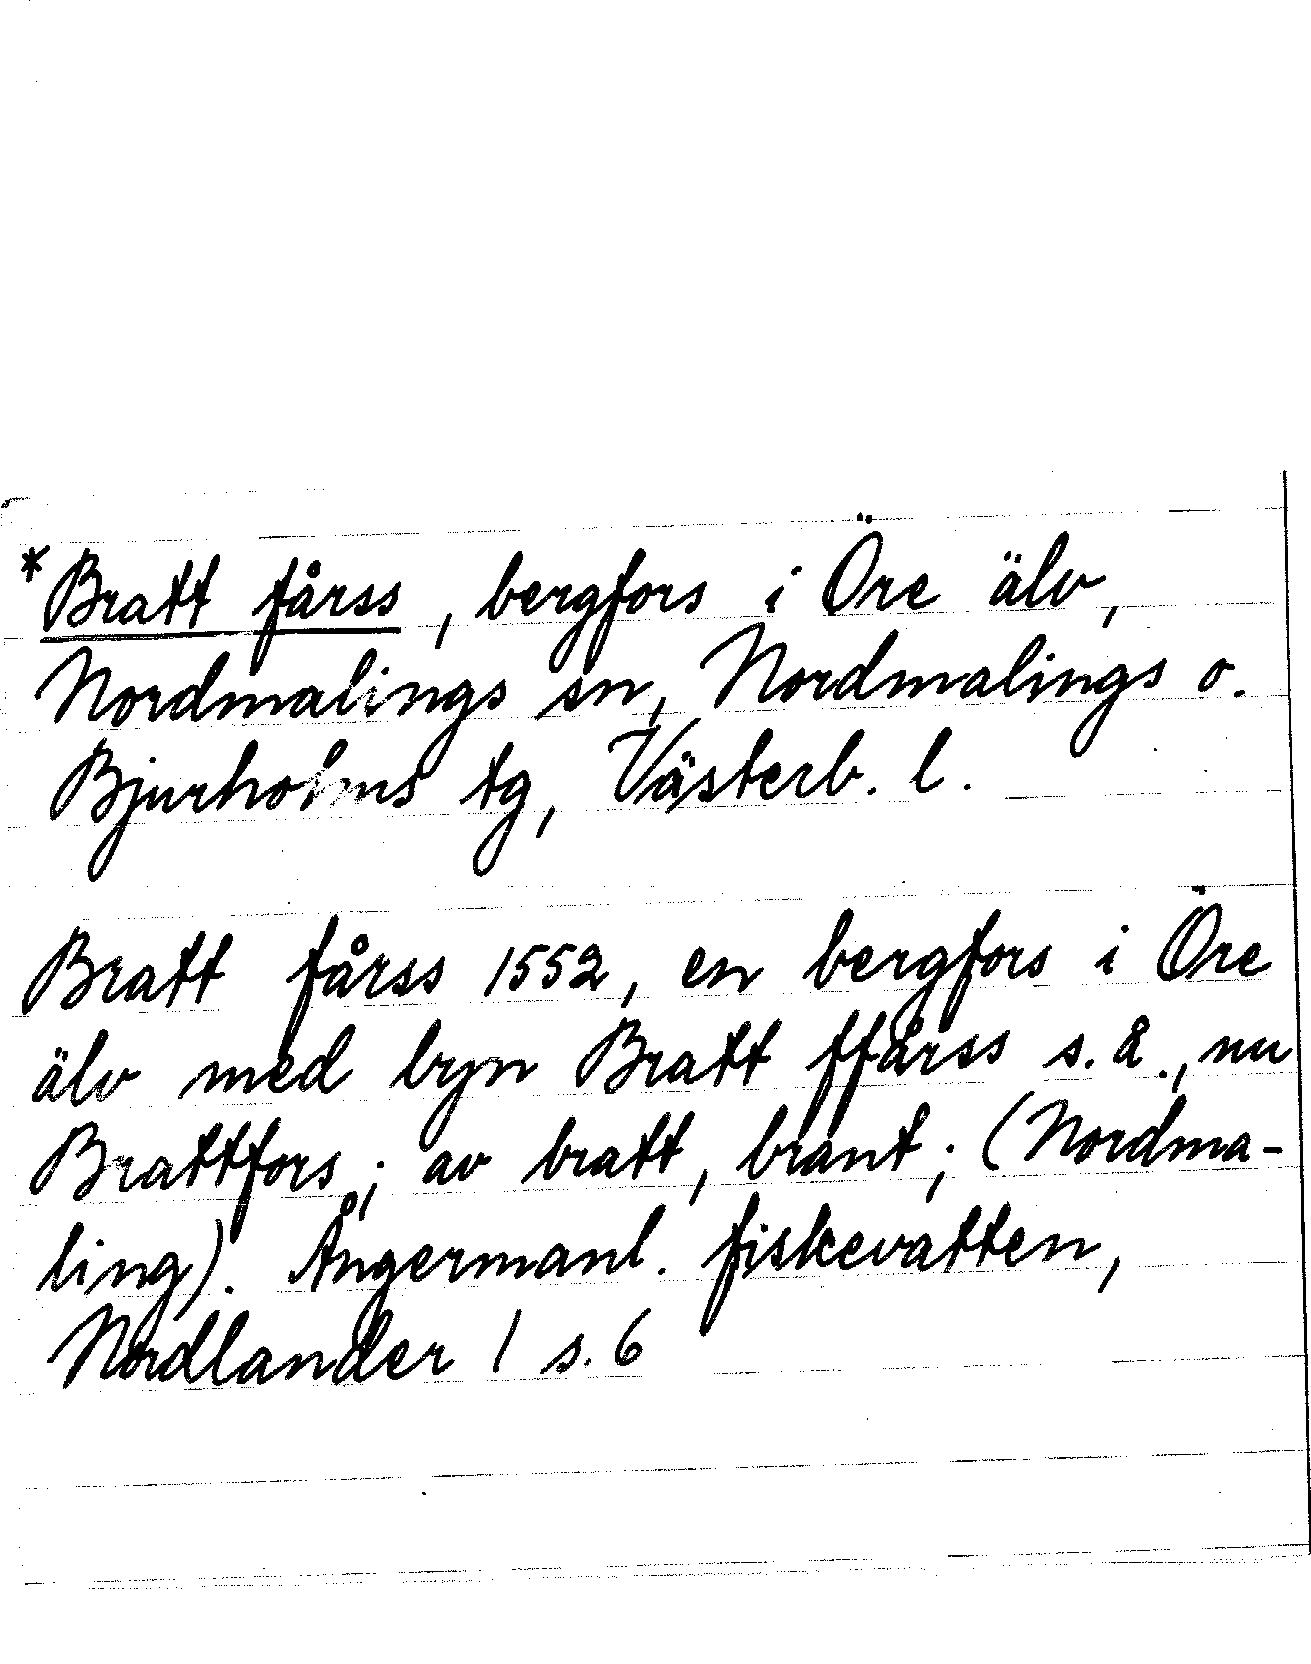 *Bratt fårss, bergfors i Öre älv,
Nordmalings sn, Nordmalings o.
Bjurholms tg, Västerb. l.
Bratt fårss 1552, en bergfors i Öre
älv med byn Bratt ffårss s. å., nu
Brattfors; av bratt, brant; (Nordma-
ling). Ångermanl. fiskevatten,
Nordlander 1 s. 6